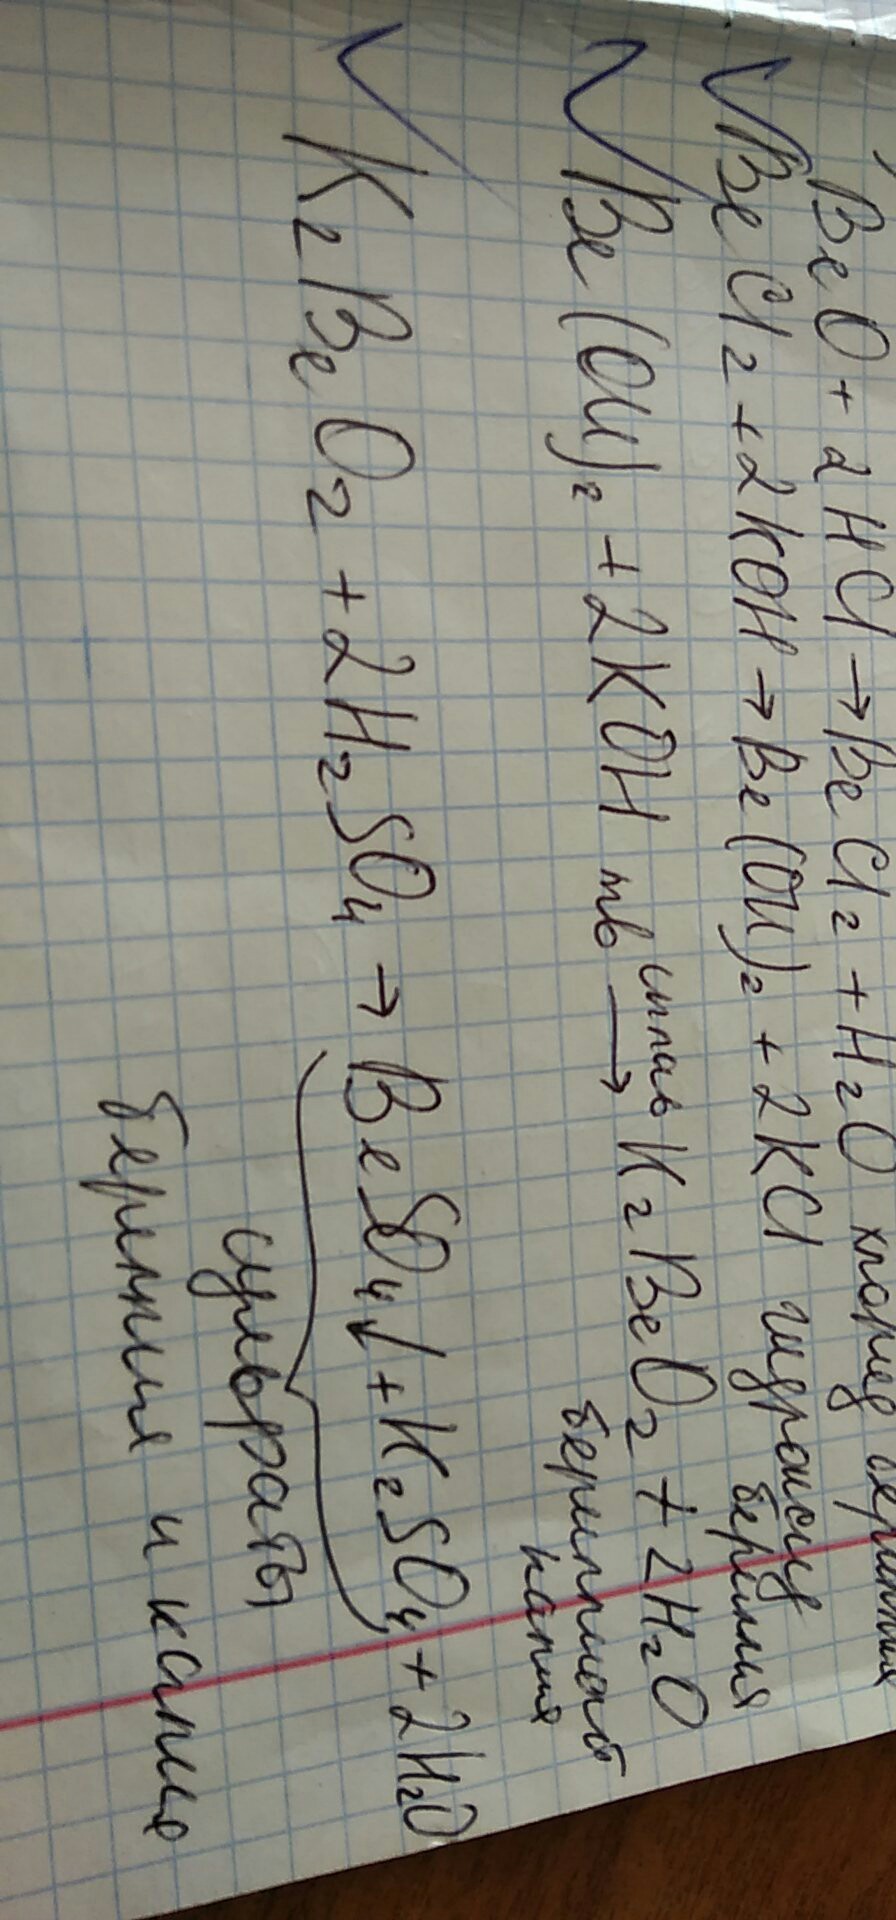 BeO + 2HCl → BeCl₂ + H₂O хлорид бериллия
BeCl₂ + 2KOH → Be(OH)₂ + 2KCl гидроксид
бериллия
сплав
Be(OH)₂ + 2KOH тв → K₂BeO₂ + 2H₂O
бериллиат
калия
K₂BeO₂ + 2H₂SO₄ → BeSO₄↓ + K₂SO₄ + 2H₂O
сульфаты
бериллия и калия